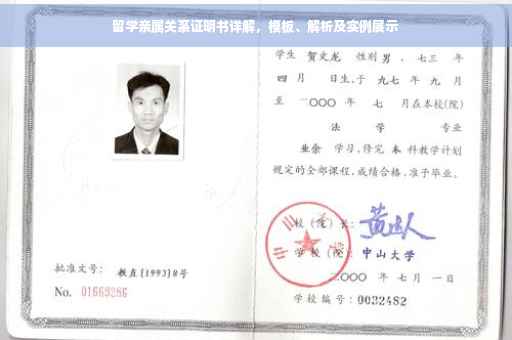 留学亲属关系证明书详解,模板、解析及实例展示
学生 贺文龙 性别 男 、七三 年
四 月 日生,于 九七 年 九 月
至 二〇〇〇 年 七 月在本校(院)
法 学 专业
业余 学习,修完 本 科教学计划
规定的全部课程,成绩合格,准予毕业。
校(院)长:
学校(院): 中山大学
二〇〇〇 年 七 月 一 日
学校编号:0032482
批准文号: 教直[1993]8号
No. 01669286